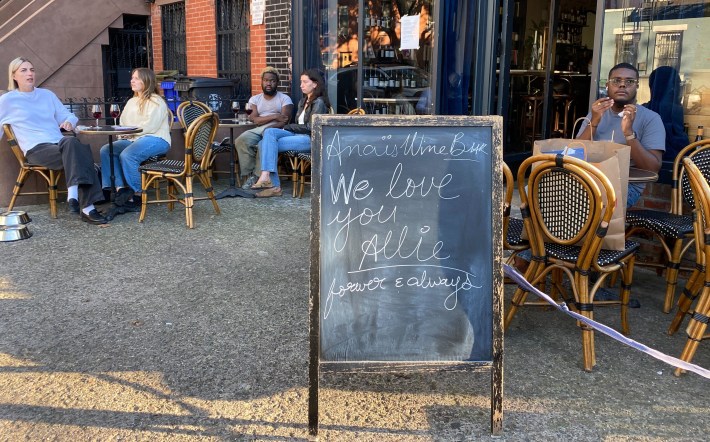 Anaïs Wine Bar
We love
you
Allie
forever & always